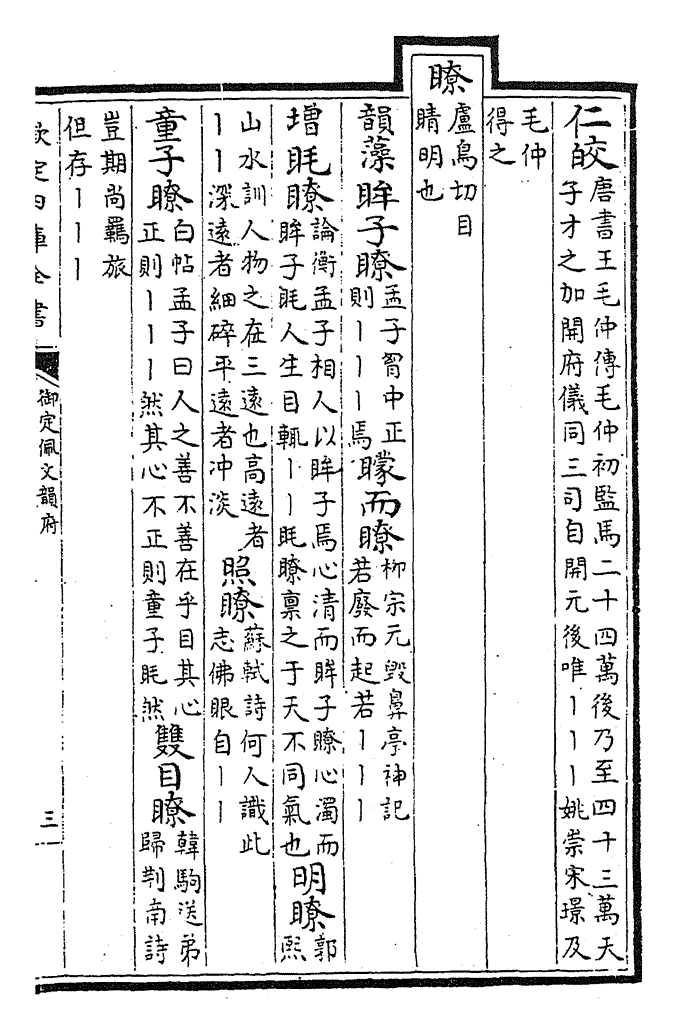 仁皎
唐書王毛仲傳毛仲初監馬二十四萬後乃至四十三萬天
子才之加開府儀同三司自開元後唯丨丨丨姚崇宋璟及
毛仲
得之
瞭
盧鳥切目
睛明也
韻藻眸子瞭
孟子胷中正
則丨丨丨焉
矇而瞭
柳宗元毀鼻亭神記
若廢而起若丨丨丨
增眊瞭
論衡孟子相人以眸子焉心清而眸子瞭心濁而
眸子眊人生目輒丨丨眊瞭稟之于天不同氣也
明瞭
郭
熙
山水訓人物之在三遠也高遠者
丨丨深遠者細碎平遠者冲淡
照瞭
蘇軾詩何人識此
志佛眼自丨丨
童子瞭
白帖孟子曰人之善不善在乎目其心
正則丨丨丨然其心不正則童子眊然
雙目瞭
韓駒送弟
歸荆南詩
豈期尚羈旅
但存丨丨丨
欽定四庫全書
御定佩文韻府
三